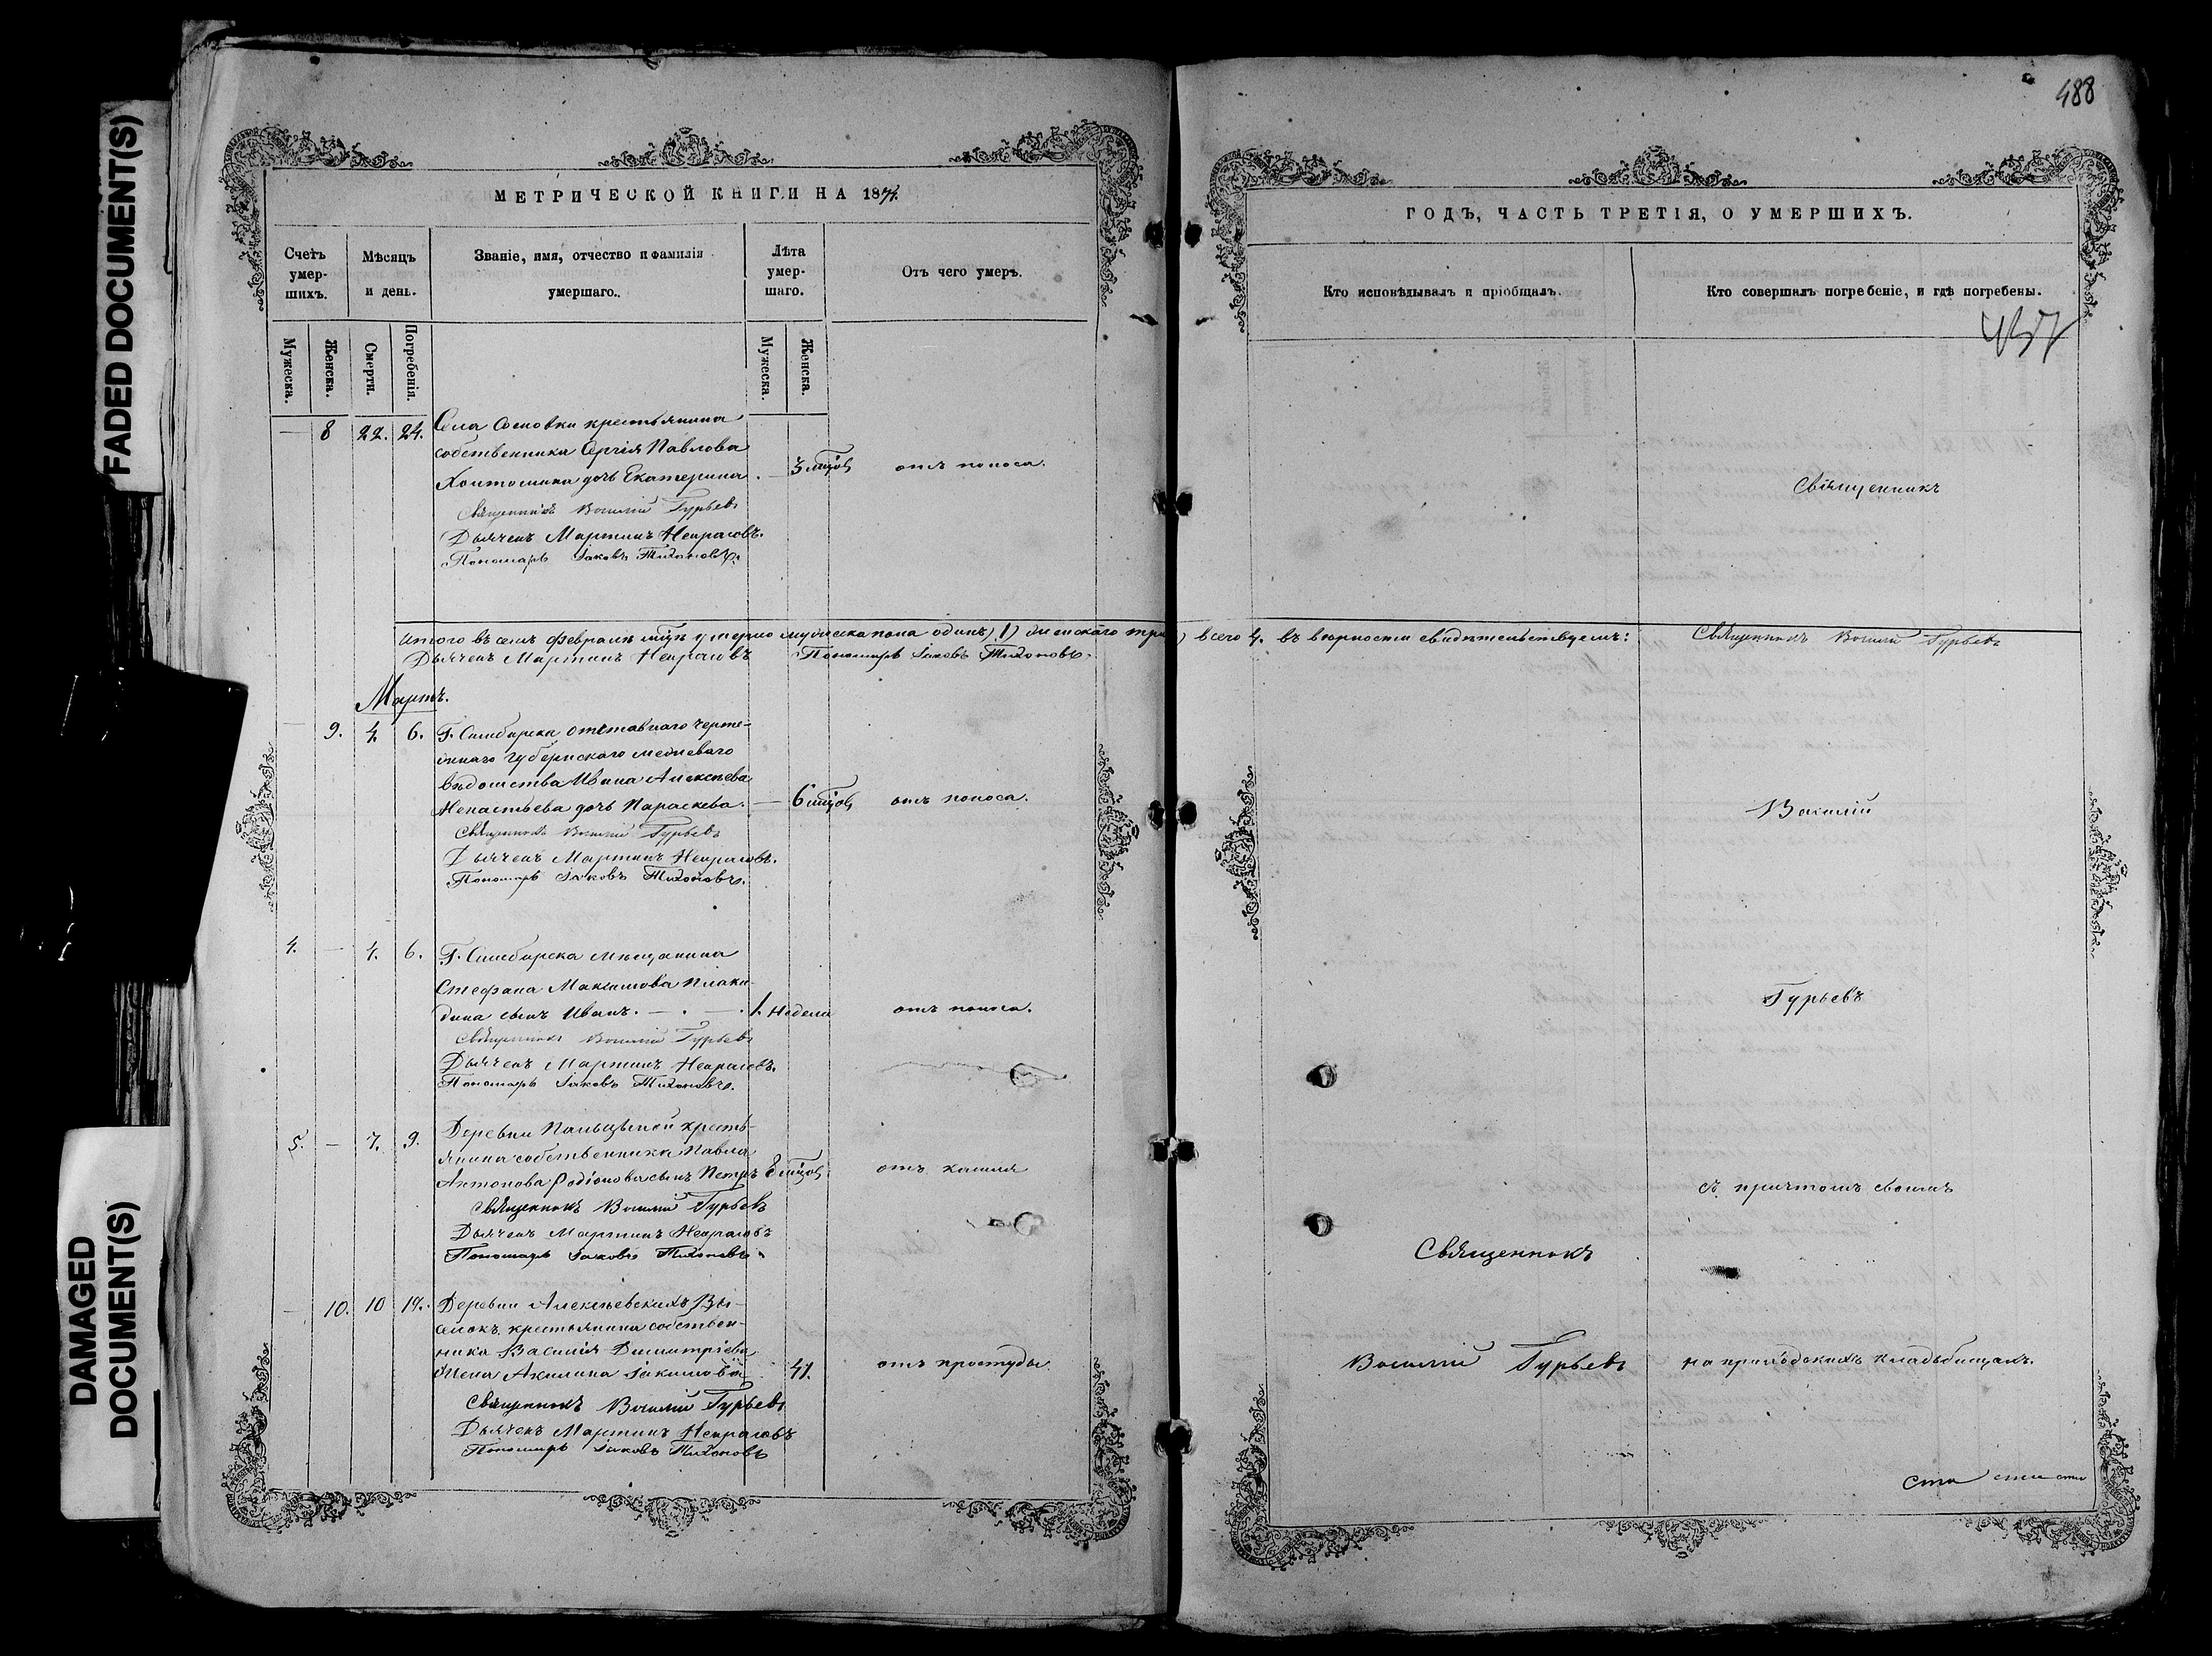 FADED DOCUMENT(S)
DAMAGED
DOCUMENT(S)
МЕТРИЧЕСКОЙ КНИГИ НА 187
Счетъ умер-шихъ.
Мѣсяцъ и день.
Званіе, имя, отчество и фамилія умершаго.
Лѣта умер-шаго.
Отъ чего умеръ.
Мужеска.
Женска.
Смерти.
Погребенія.
Мужеска.
Женска.
— 8 22. 24. Села Сосновки крестьянина
собственника Сергія Павлова
дочь Екатерина. — 3 мцов отъ поноса.
Священникъ Василій Гурьевъ
Дьячекъ Мартинъ Некрасовъ.
Пономарь Іаковъ Тихоновъ.
Итого въ семъ Февралѣ мцѣ умерло мужеска пола одинъ (1) женскаго три
Дьячекъ Мартинъ Некрасовъ Пономарь Іаковъ Тихоновъ.
Мартъ.
— 9. 4. 6. Г. Симбирска отставнаго черте-
жнаго Губернскаго межеваго
вѣдомства Ивана Алексѣева
Ненастьева дочь Параскева. — 6 мцов отъ поноса.
Священникъ Василій Гурьевъ
Дьячекъ Мартинъ Некрасовъ.
Пономарь Іаковъ Тихоновъ.
4. — 4. 6. Г. Симбирска мѣщанина
Стефана Максимова Плаки-
дина сынъ Иванъ. — . — . 1. недели отъ поноса.
Священникъ Василій Гурьевъ
Дьячекъ Мартинъ Некрасовъ.
Пономарь Іаковъ Тихоновъ.
5. — 7. 9. Деревни крестъ-
янина собственника Павла
Антонова Родіонова сынъ Петръ 8 мцов. отъ кашля
Священникъ Василій Гурьевъ
Дьячекъ Мартинъ Некрасовъ
Пономарь Іаковъ Тихоновъ.
— 10. 10 Деревни Алексѣевскихъ Вы-
селокъ крестьянина собствен-
ника Василія Димитріева
жена Акилина Іакимова отъ простуды.
Священникъ Василій Гурьевъ
Дьячекъ Мартинъ Некрасовъ
Пономарь Іаковъ Тихоновъ
488
ГОДЪ, ЧАСТЬ ТРЕТІЯ, О УМЕРШИХЪ.
Кто исповѣдывалъ и пріобщалъ.
Кто совершалъ погребеніе, и гдѣ погребены.
Священникъ
всего 4. въ вѣрности свидѣтельствуемъ: Священникъ Василій Гурьевъ
Василій
Гурьевъ
съ причтомъ своимъ
Священникъ
Василій Гурьевъ на приходскихъ кладбищахъ.